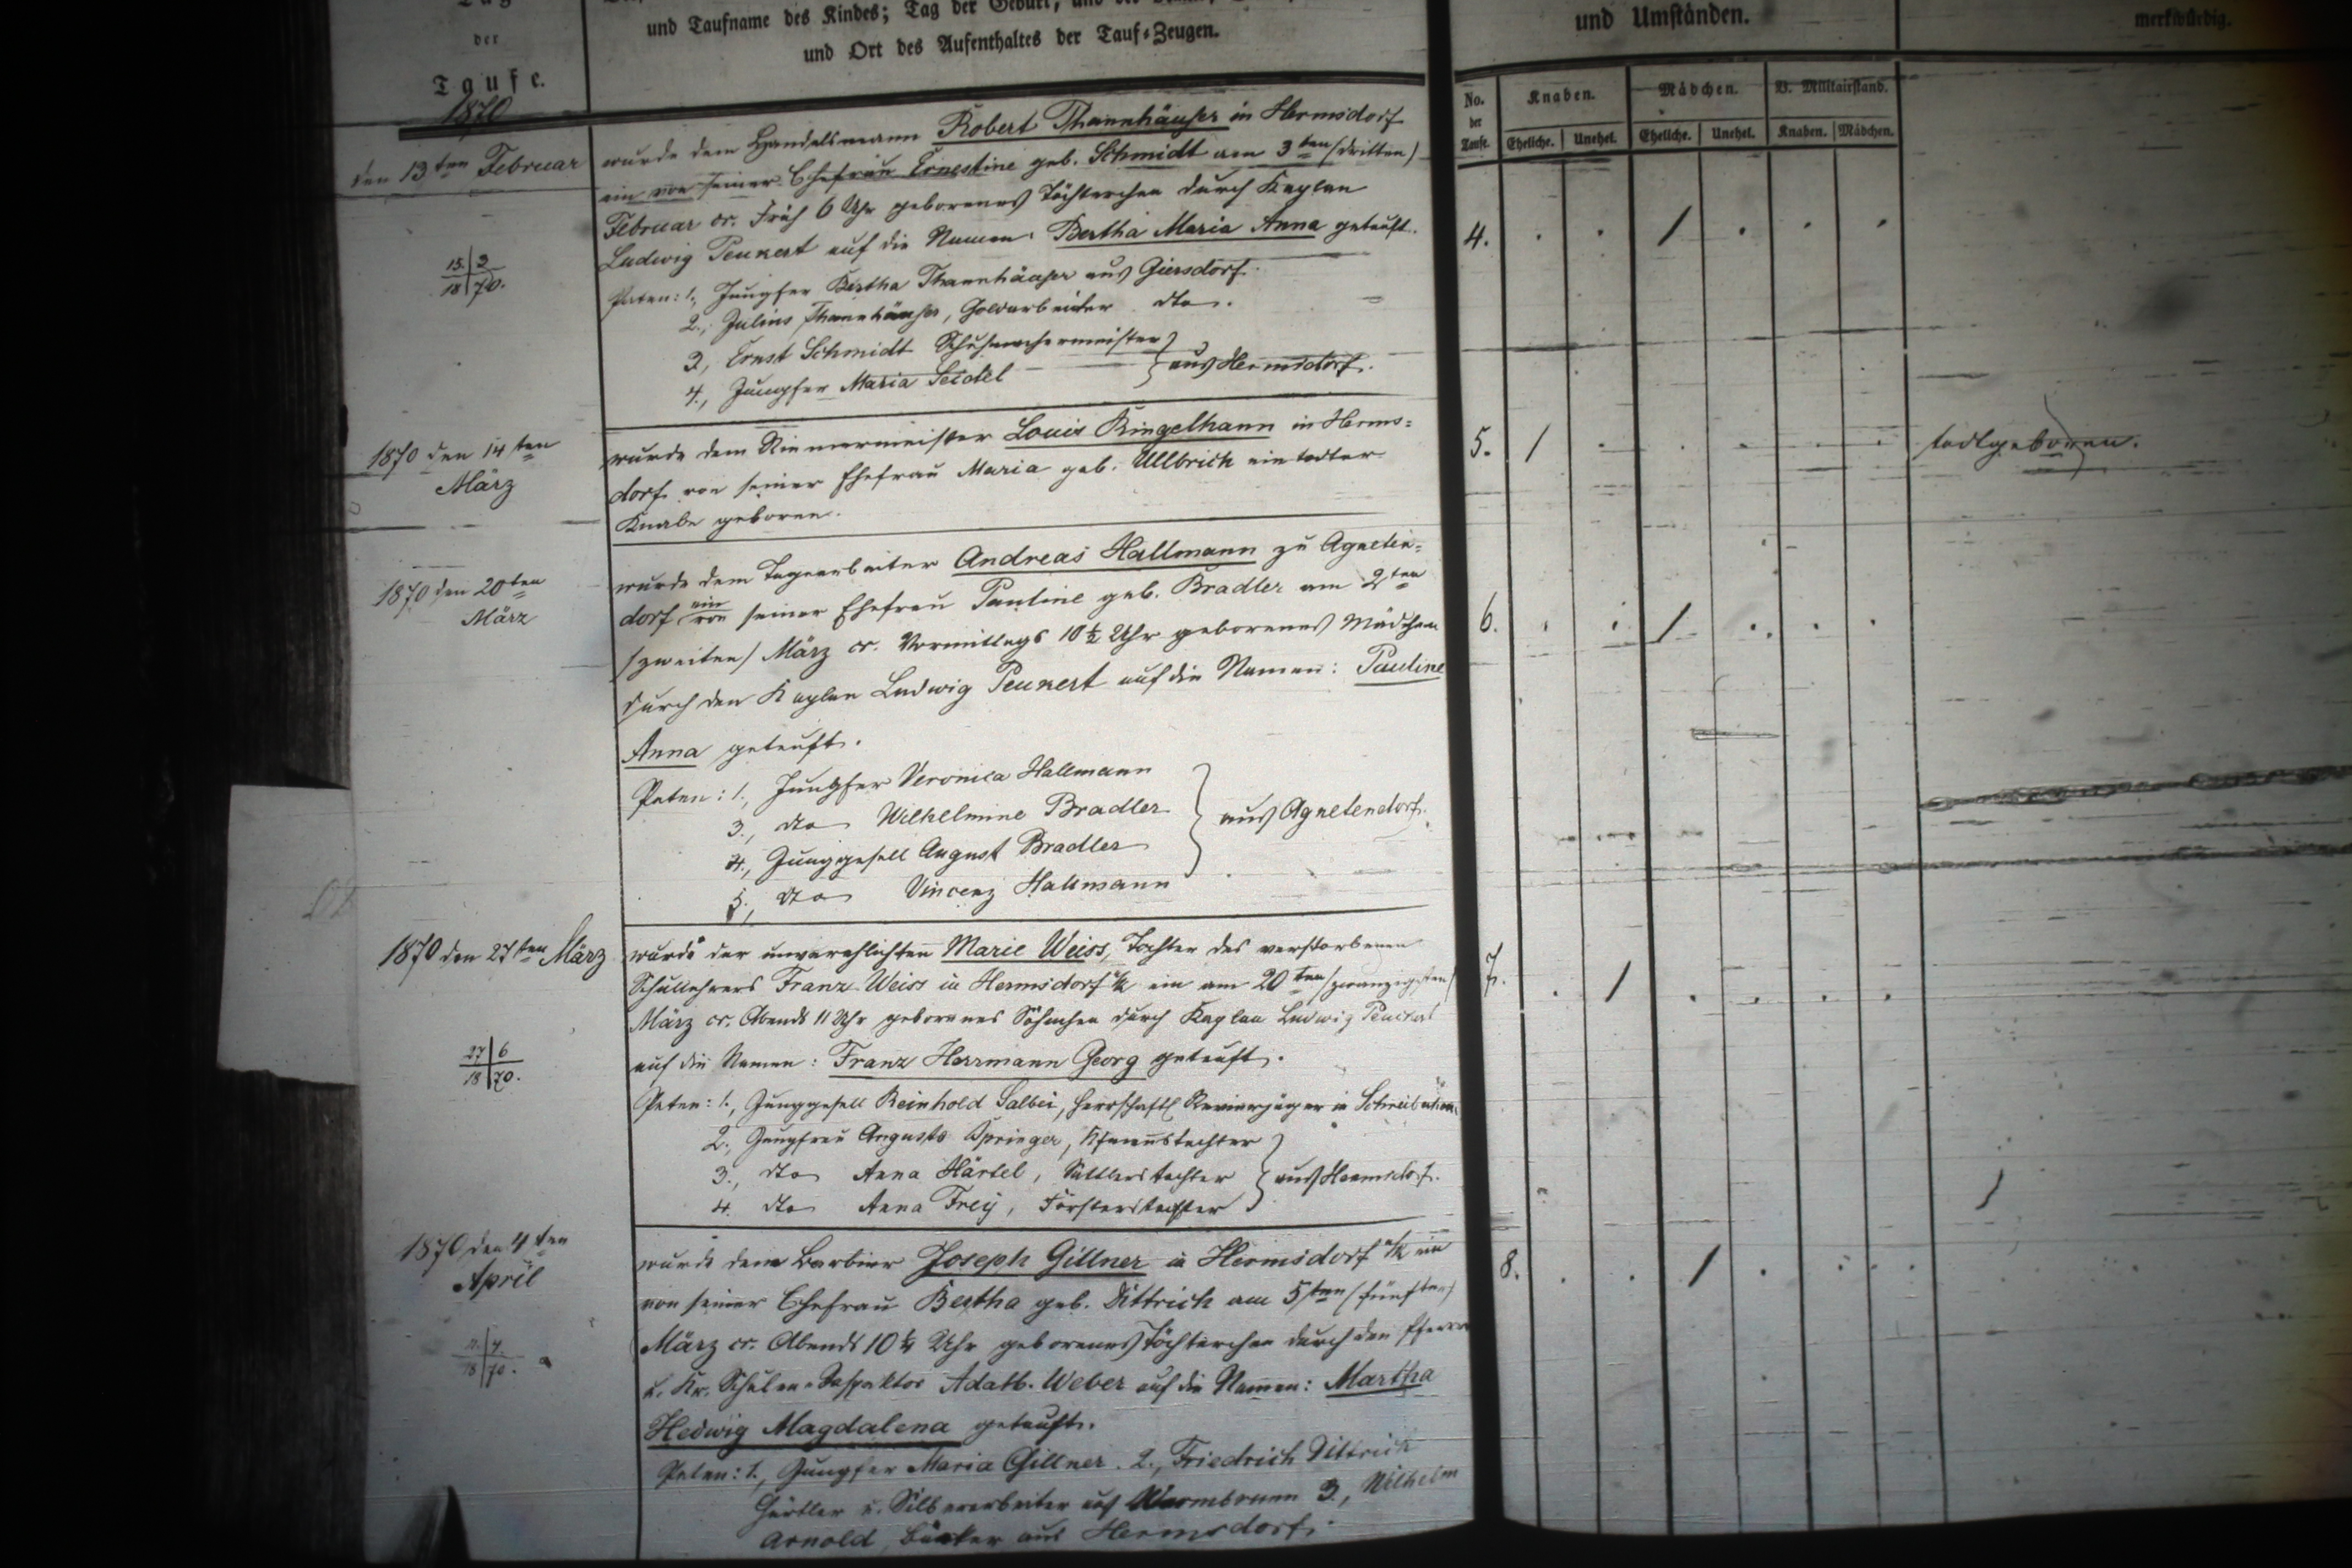 der
Taufe.
und Taufname des Kindes; Tag der Geburt,
und Ort des Aufenthaltes der Tauf-Zeugen.
und Umständen.
merkwürdig.
No.
der
Taufe.
Knaben.
Mädchen.
B. Militairstand.
Eheliche.
Unehel.
Eheliche.
Unehel.
Knaben.
Mädchen.
1870
den 13ten Februar
wurde dem Handelsmann Robert Thannhäuser in Hermsdorf
ein von seiner Ehefrau Ernestine geb. Schmidt am 3ten /dritten/
Februar cr. Früh 6 Uhr geborenes Töchterchen durch Kaplan
Ludwig Peukert auf die Namen: Bertha Maria Anna getauft.
Paten: 1., Jungfer Bertha Thannhäuser aus Giersdorf.
2., Julius Thannhäuser, Goldarbeiter dto.
3., Ernst Schmidt Schuhmachermeister
4., Jungfer Maria Seidel
aus Hermsdorf.
4. . . / . . .
15. 3
18 70.
1870 den 14ten
März
wurde dem Riemermeister Louis Ringelhann in Herms=
dorf von seiner Ehefrau Maria geb. Ullbrich ein todter
Knabe geboren.
5. / . . . . .
todtgeboren.
1870 den 20ten
März
wurde dem Tagearbeiter Andreas Hallmann zu Agneten=
dorf ein von seiner Ehefrau Pauline geb. Bradler am 2ten
/zweiten/ März cr. Vormittags 10 1/2 Uhr geborenes Mädchen
durch den Kaplan Ludwig Peukert auf die Namen: Pauline
Anna getauft.
6. . . / . . .
Paten: 1., Jungfer Veronica Hallmann
3., dto Wilhelmine Bradler
4., Junggesell August Bradler
5., dto Vincenz Hallmann
aus Agnetendorf.
1870 den 27ten März
wurde der unverehlichten Marie Weiss, Tochter des verstorbenen
Schullehrers Franz Weiss in Hermsdorf u/K ein am 20ten /zwanzigsten/
März cr. Abends 11 Uhr geborenes Söhnchen durch Kaplan Ludwig Peukert
auf die Namen: Franz Herrmann Georg getauft.
7. . / . . . .
27 6
18 70.
Paten: 1., Junggesell Reinhold Salbei, herrschaftl Revierjäger in
2., Jungfrau Augusta Springer,
3., dto Anna Härtel, Sattlerstochter
4. dto Anna Frey, Försterstochter
aus Hermsdorf.
1870 den 4ten
April
wurde dem Barbier Joseph Gillner in Hermsdorf u/K ein
von seiner Ehefrau Bertha geb. Dittrich am 5ten /fünften/
März cr. Abends 10 1/4 Uhr geborenes Töchterchen durch den Pfarrer
u. Kr. Schulen-Inspektor Adalb. Weber auf die Namen: Martha
Hedwig Magdalena getauft.
8. . . / . . .
18 70.
Paten: 1., Jungfer Maria Gillner. 2., Friedrich Dittrich
Gürtler u. Silberarbeiter aus Warmbrunn 3., Wilhelm
Arnold, Bäcker aus Hermsdorf.